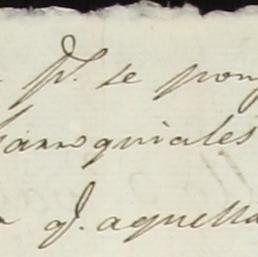 p.r se pong
parroquiales
q.e aquella